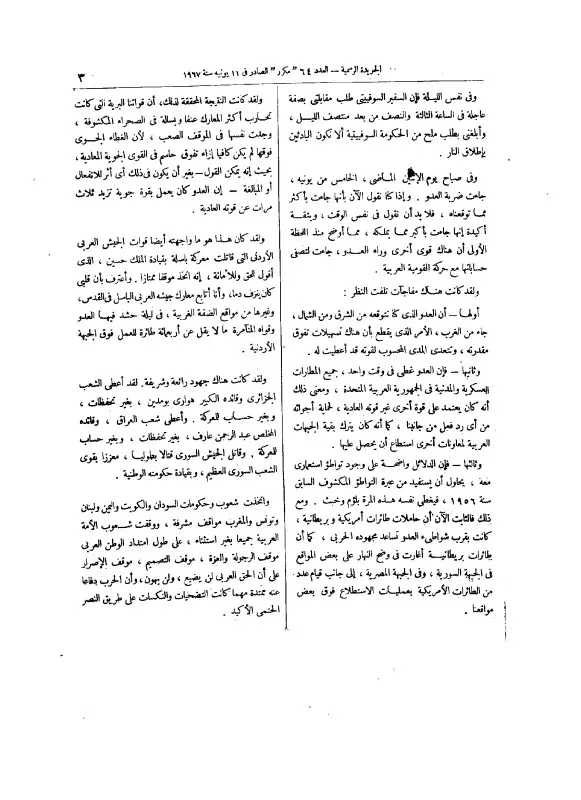 الجريدة الرسمية – العدد ٦٤ "مكرر" الصادر فى ١١ يونيه سنة ١٩٦٧
٣
وفى نفس الليلة فإن السفير السوفييتى طلب مقابلتى بصفة
عاجلة فى الساعة الثالثة والنصف من بعد منتصف الليل ،
وأبلغنى بطلب ملح من الحكومة السوفييتية ألا نكون البادئين
بإطلاق النار .
وفى صباح يوم الإثنين الماضى ، الخامس من يونيه ،
جاءت ضربة العدو . وإذا كنا نقول الآن بأنها جاءت بأكثر
مما توقعناه ، فلا بد أن نقول فى نفس الوقت ، وبثقة
أكيدة إنها جاءت بأكبر مما يملكه ، مما أوضح منذ اللحظة
الأولى أن هناك قوى أخرى وراء العدو ، جاءت لتصفى
حساباتها مع حركة القومية العربية .
ولقد كانت هناك مفاجآت تلفت النظر :
أولها – أن العدو الذى كنا نتوقعه من الشرق ومن الشمال ،
جاء من الغرب ، الأمر الذى يقطع بأن هناك تسهيلات تفوق
مقدرته ، وتتعدى المدى المحسوب لقوته قد أعطيت له .
وثانيها – فإن العدو غطى فى وقت واحد ، جميع المطارات
العسكرية والمدنية فى الجمهورية العربية المتحدة ، ومعنى ذلك
أنه كان يعتمد على قوة أخرى غير قوته العادية ، لحماية أجوائه
من أى رد فعل من جانبنا ، كما أنه كان يترك بقية الجبهات
العربية لمعاونات أخرى استطاع أن يحصل عليها .
وثالثها – فإن الدلائل واضحة على وجود تواطؤ استعمارى
معه ، يحاول أن يستفيد من عبرة التواطؤ المكشوف السابق
سنة ١٩٥٦ ، فيغطى نفسه هذه المرة بلؤم وخبث . ومع
ذلك فالثابت الآن أن حاملات طائرات أمريكية وبريطانية ،
كانت بقرب شواطىء العدو تساعد مجهوده الحربى ، كما أن
طائرات بريطانية أغارت فى وضح النهار على بعض المواقع
فى الجبهة السورية ، وفى الجبهة المصرية ، إلى جانب قيام عدد
من الطائرات الأمريكية بعمليات الاستطلاع فوق بعض
مواقعنا .
ولقد كانت النتيجة المحققة لذلك، أن قواتنا البرية التى كانت
تحارب أكثر المعارك عنفا وبسالة فى الصحراء المكشوفة ،
وجدت نفسها فى الموقف الصعب ، لأن الغطاء الجوى
فوقها لم يكن كافيا إزاء تفوق حاسم فى القوى الجوية المعادية،
بحيث إنه يمكن القول – بغير أن يكون فى ذلك أى أثر للانفعال
أو المبالغة – إن العدو كان يعمل بقوة جوية تزيد ثلاث
مرات عن قوته العادية .
ولقد كان هذا هو ما واجهته أيضا قوات الجيش العربى
الأردنى التى قاتلت معركة باسلة بقيادة الملك حسين ، الذى
أقول للحق وللأمانة ، إنه اتخذ موقفا ممتازا . وأعترف بأن قلبى
كان ينزف دما، وأنا أتابع معارك جيشه العربى الباسل فى القدس،
وغيرها من مواقع الضفة الغربية ، فى ليلة حشد فيها العدو
وقواه المتآمرة ما لا يقل عن أربعمائة طائرة للعمل فوق الجبهة
الأردنية .
ولقد كانت هناك جهود رائعة وشريفة. لقد أعطى الشعب
الجزائرى وقائده الكبير هوارى بومدين ، بغير تحفظات ،
وبغير حساب للمعركة . وأعطى شعب العراق ، وقائده
المخلص عبد الرحمن عارف ، بغير تحفظات ، وبغير حساب
للمعركة . وقاتل الجيش السورى قتالا بطوليا ، معززا بقوى
الشعب السورى العظيم ، وبقيادة حكومته الوطنية .
واتخذت شعوب وحكومات السودان والكويت واليمن ولبنان
وتونس والمغرب مواقف مشرفة ، ووقفت شعوب الأمة
العربية جميعا بغير استثناء ، على طول امتداد الوطن العربى
موقف الرجولة والعزة ، موقف التصميم ، موقف الإصرار
على أن الحق العربى لن يضيع ، ولن يهون، وأن الحرب دفاعا
عنه ممتدة مهما كانت التضحيات والنكسات على طريق النصر
الحتمى الأكيد .